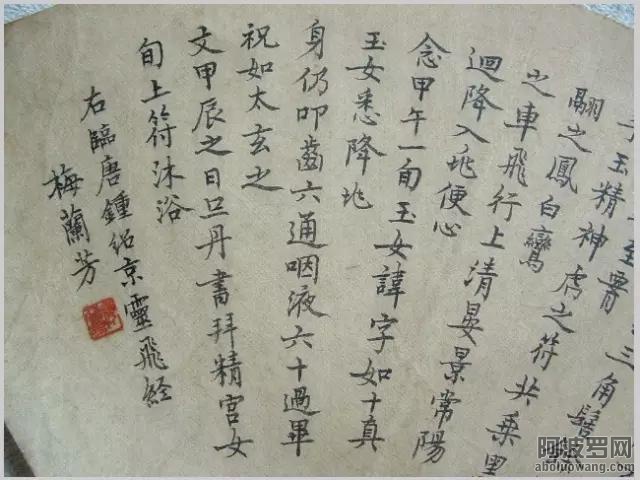 三角髻
玉精神虎之符共乘黑
翮之鳳白鸞
之車飛行上清晏景常陽
迴降入兆便心
念甲午一旬玉女諱字如十真
玉女悉降兆
身仍叩齒六通咽液六十過畢
祝如太玄之
文甲辰之日旦丹書拜精宮女
旬上符沐浴
右臨唐鍾紹京靈飛経
梅蘭芳
阿波罗网
aboluowang.com